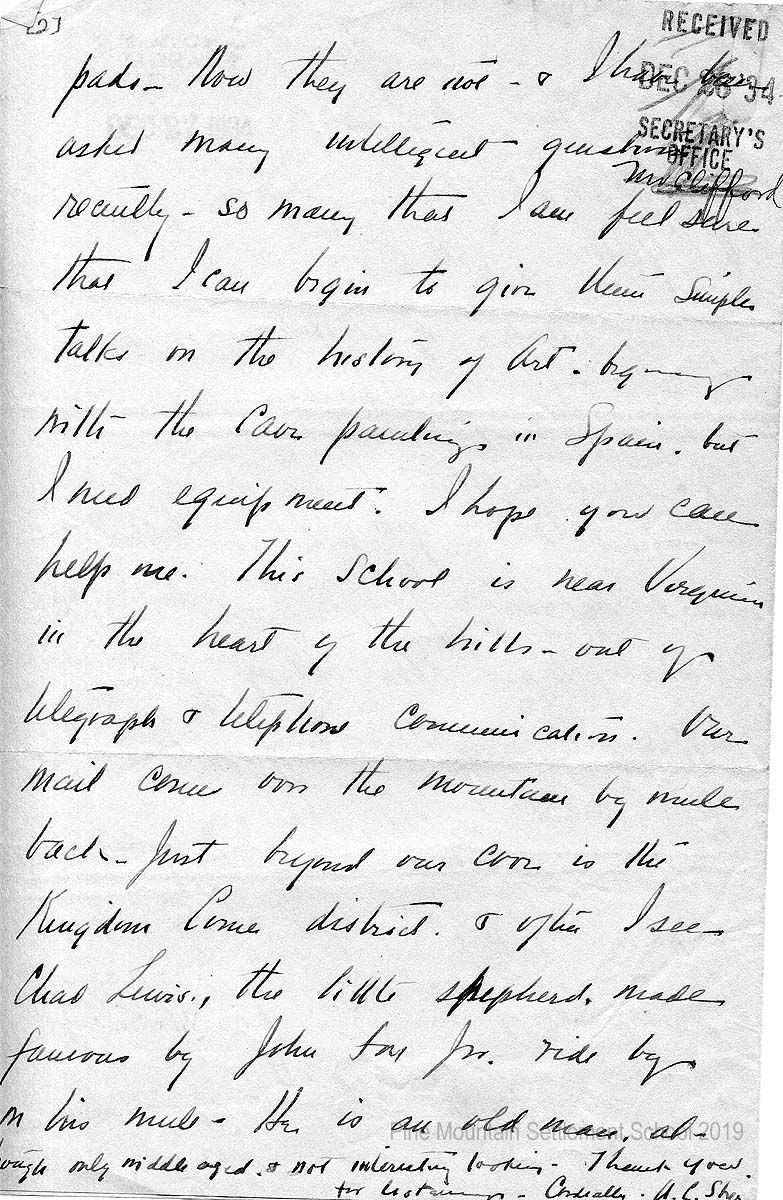 [2]
RECEIVED
DEC 28 34
SECRETARY'S
OFFICE
Mr Clifford
pads - Now they are not - & I have been
asked many intelligent questions
recently - so many that I am feel sure
that I can begin to give them simple
talks on the history of Art. beginning
with the cave paintings in Spain. but
I need equipment. I hope you can
help me. This School is near Virginia
in the heart of the hills - out of
telegraph & telephone communication. Our
mail comes over the mountain by mule
back - Just beyond our cove is the
Kingdom Come district. & often I see
Chad Lewis, the little shepherd, made
famous by John Fox Jr. ride by
on his mule - He is an old man, al-
though only middle aged. & not interesting looking - Thank you.
for listening - Cordially - A. C.
Pine Mountain Settlement School 2019